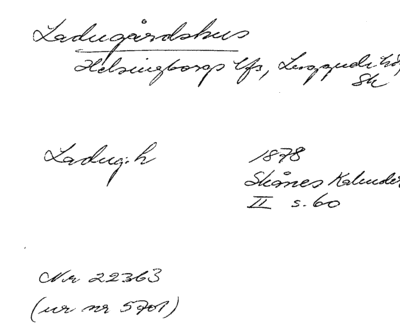 Ladugårdshus
Helsingborgs lfs, Luggude hd,
Sk
Ladug.h
1878
Skånes Kalender
II s. 60
Nr 22363
(ur nr 5701)